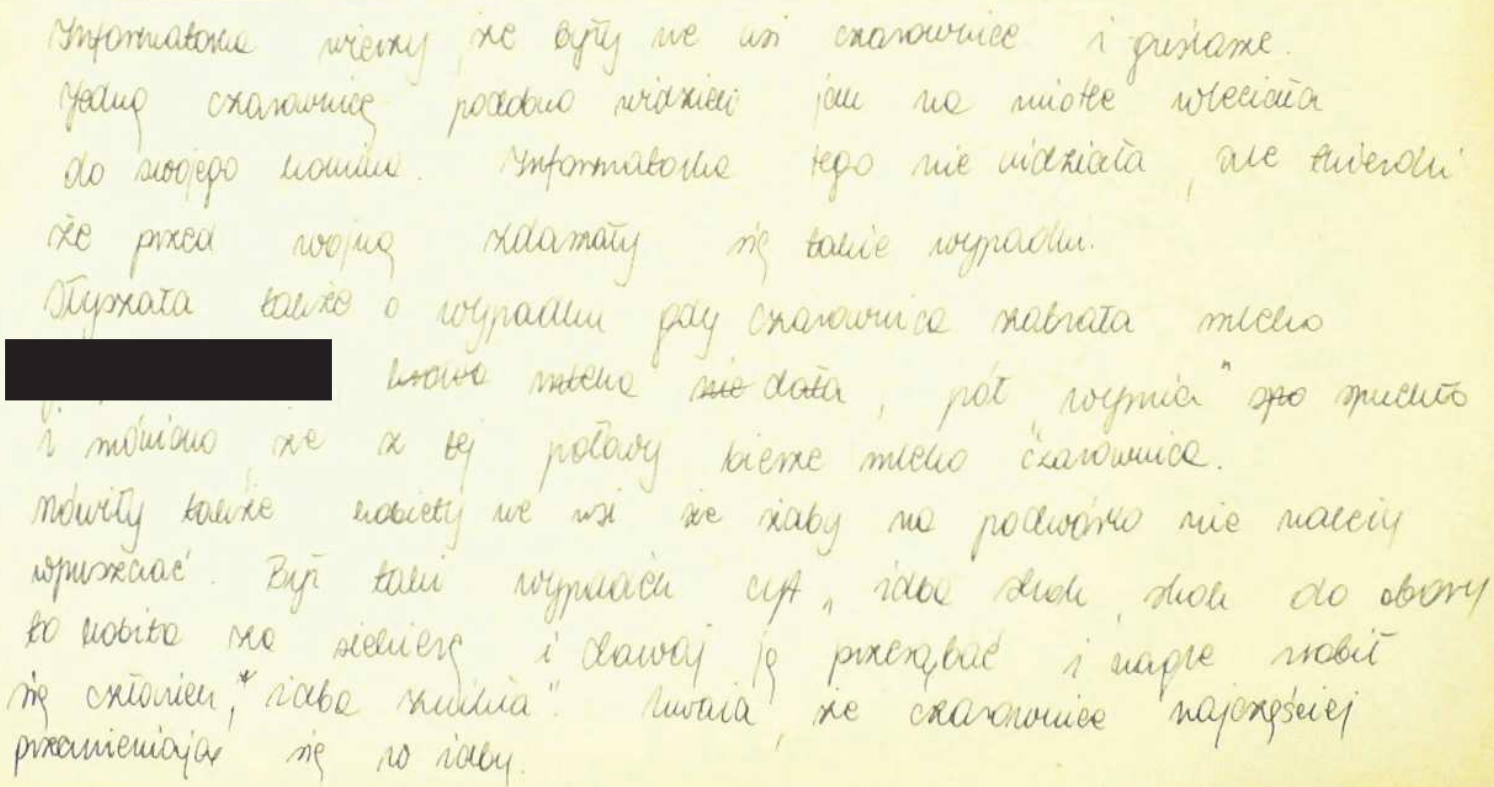 Informatorka wierzy, że były we wsi czarownice i guślarze.
Jedną czarownicę podobno widzieli jak na miotle wleciała
do swojego komina. Informatorka tego nie widziała, ale twierdzi
że przed wojną zdarzały się takie wypadki.
Słyszała także o wypadku gdy czarownica zabrała mleko
krowa mleka nie dała, pół "wymia" spo spuchło
i mówiono, że z tej połowy bierze mleko czarownica.
Mówiły także kobiety we wsi że żaby na podwórko nie należy
wpuszczać. Był taki wypadek cyt „żaba skok, skok do obory
to kobita za siekierę i dawaj ją przerąbać i nagle zrobił
się człowiek, żaba znikła". Uważa, że czarownice najczęściej
przemieniają się w żaby.